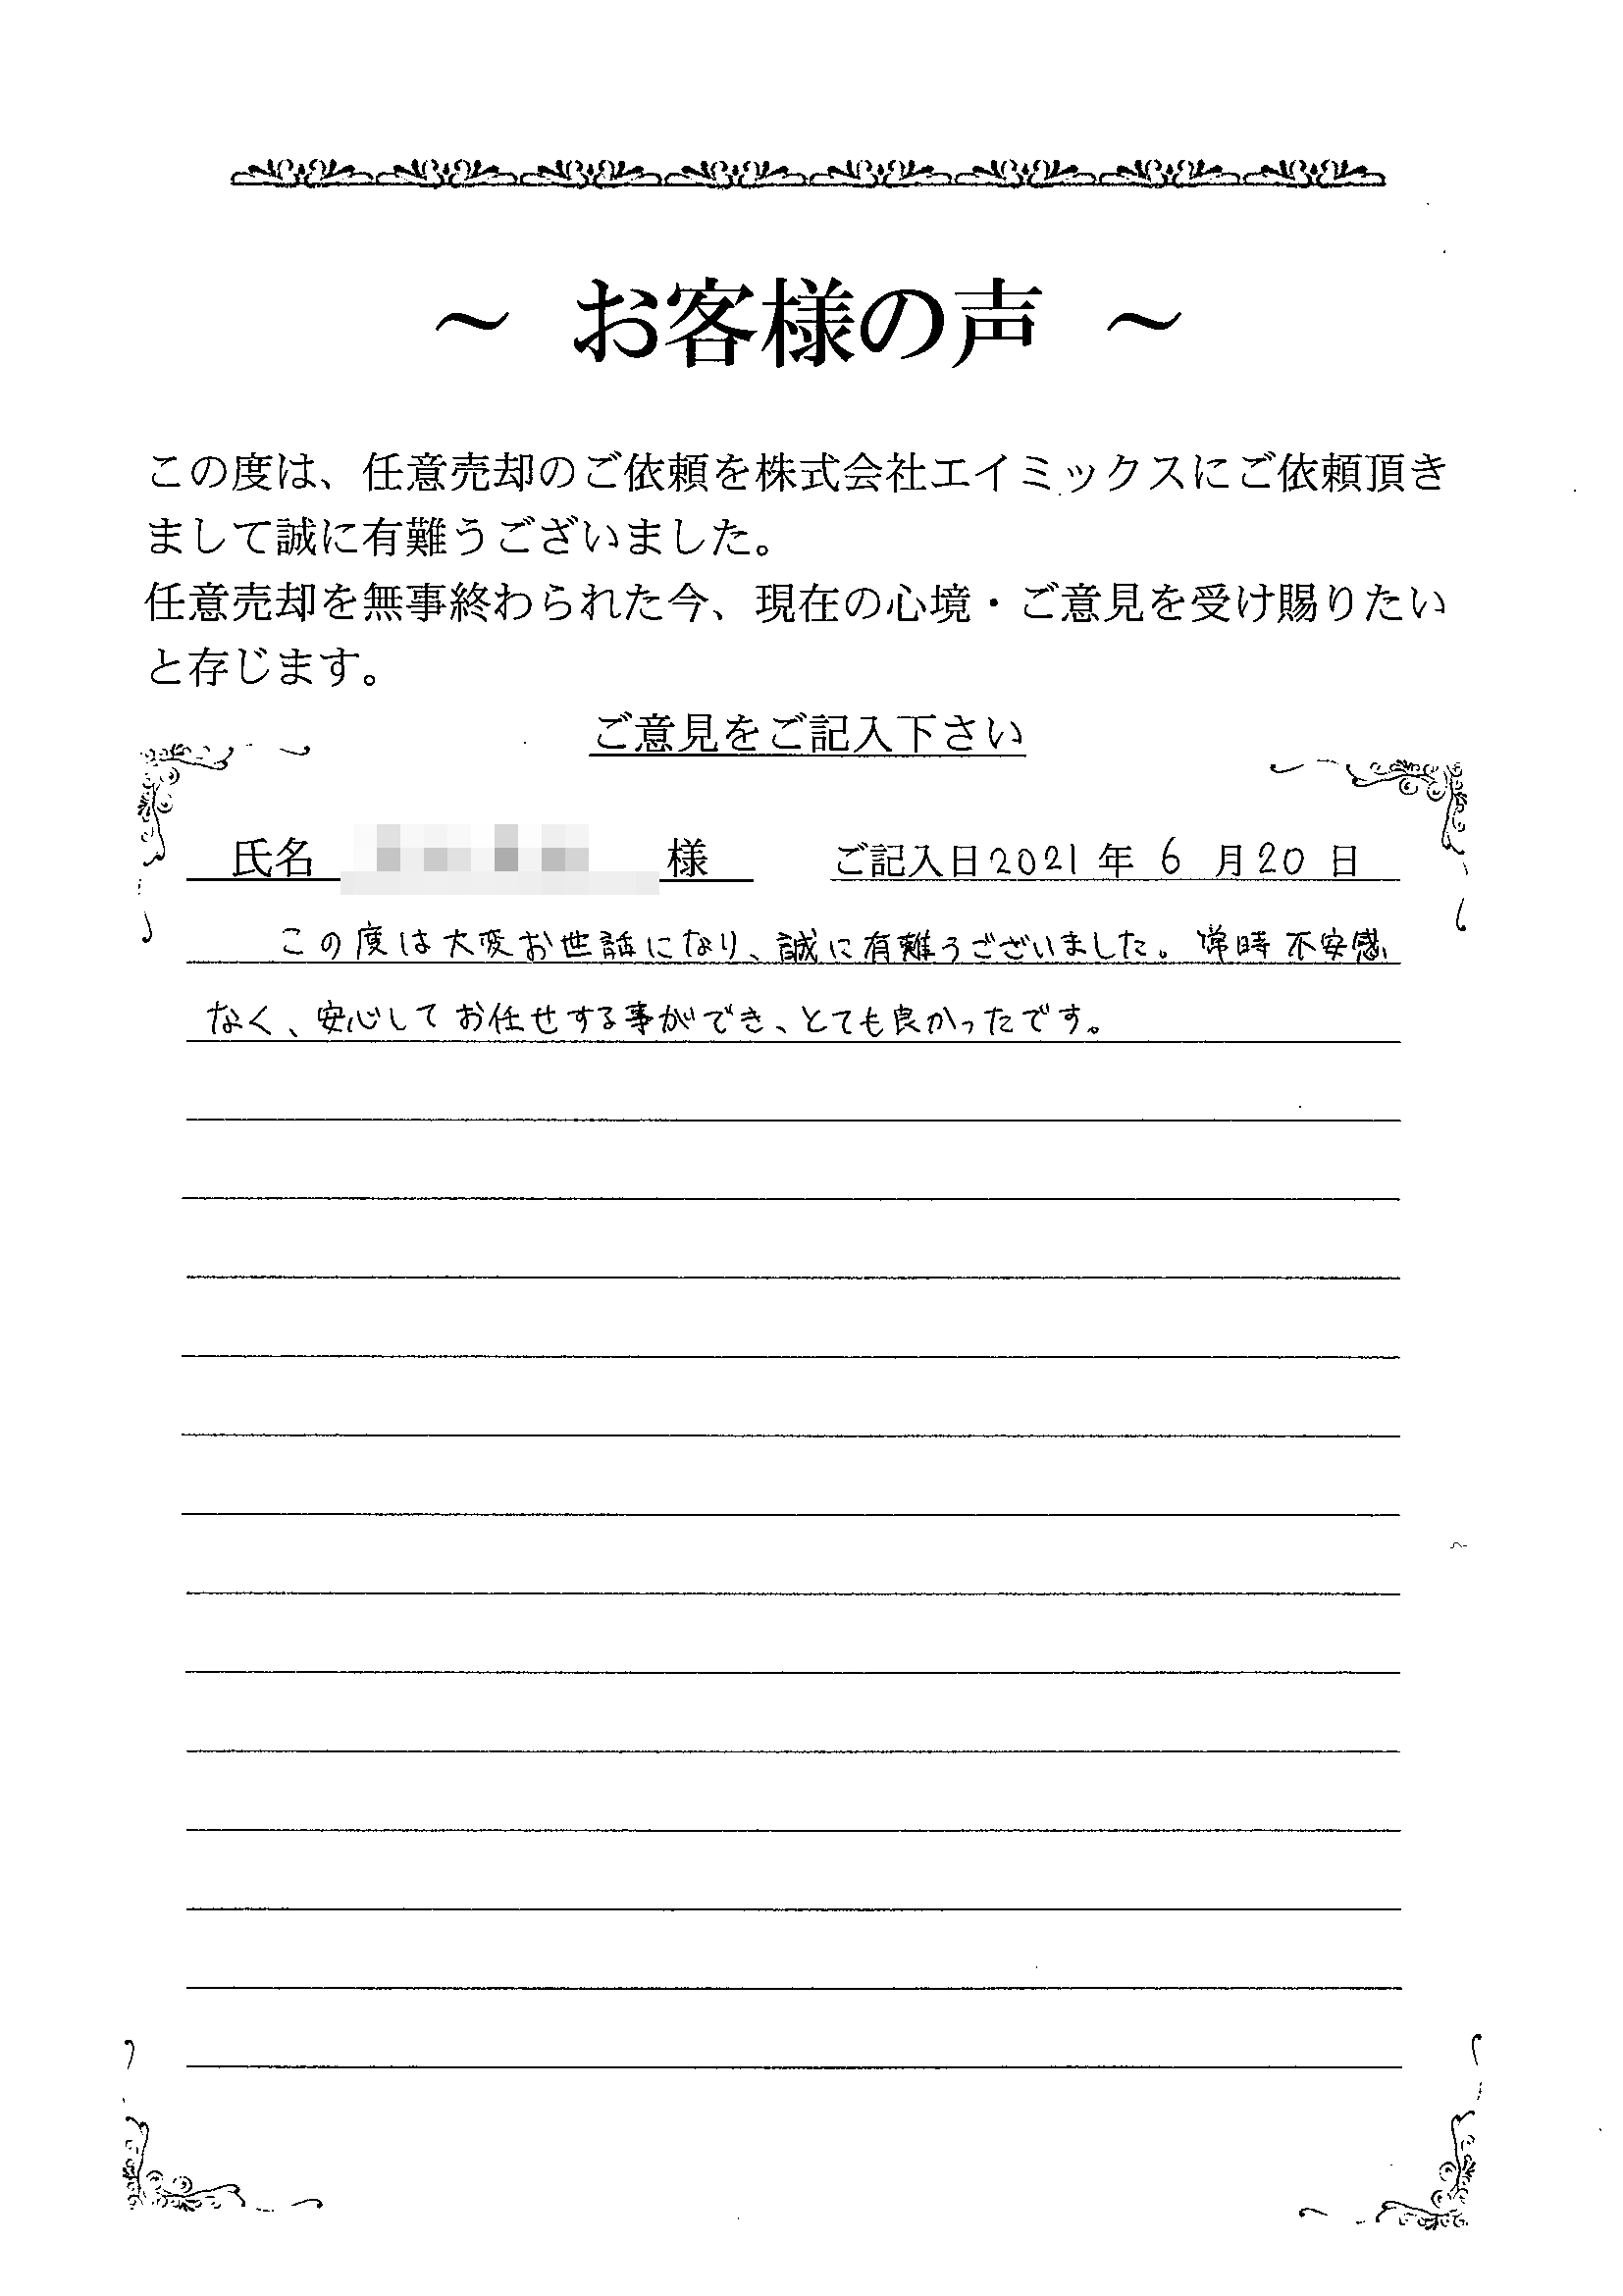 ～ お客様の声 ～
この度は、任意売却のご依頼を株式会社エイミックスにご依頼頂き
まして誠に有難うございました。
任意売却を無事終わられた今、現在の心境・ご意見を受け賜りたい
と存じます。
ご意見をご記入下さい
氏名 様 ご記入日2021年 6 月20 日
この度は大変お世話になり、誠に有難うございました。常時不安感
なく、安心してお任せする事ができ、とても良かったです。